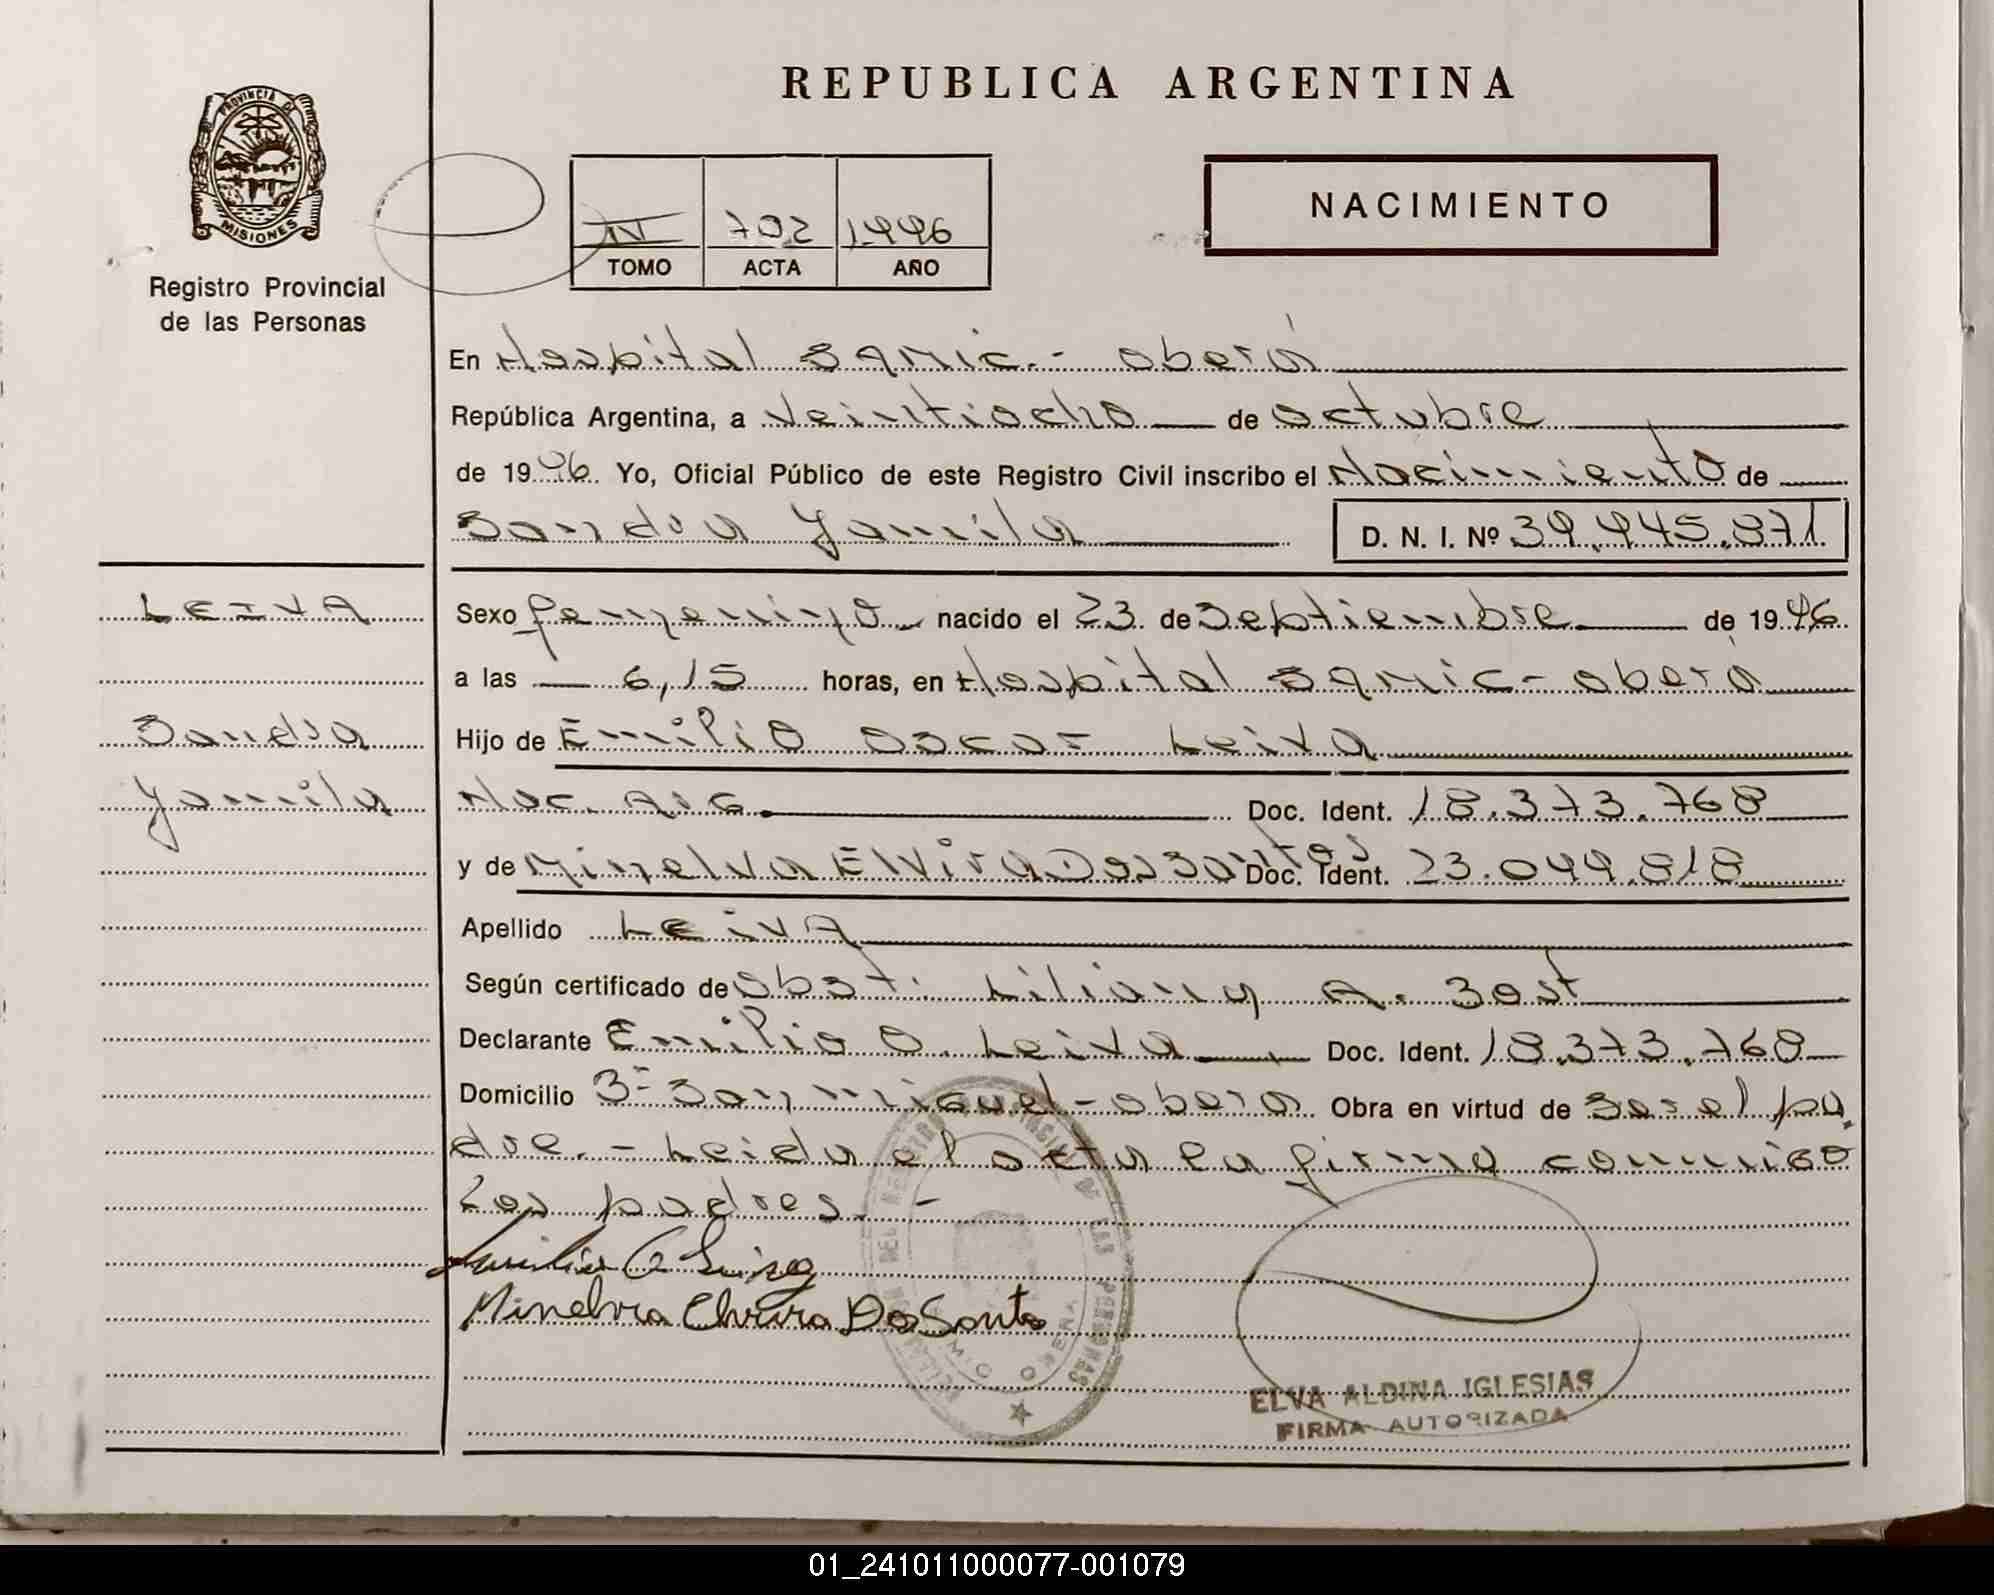 PROVINCIA DE
MISIONES
Registro Provincial
de las Personas
REPUBLICA ARGENTINA
IV 702 1996
TOMO ACTA AÑO
NACIMIENTO
En Hospital Samic.- oberá
República Argentina, a veintiocho de octubre
de 1996. Yo, Oficial Público de este Registro Civil inscribo el Nacimiento de
Sandra Yamila D. N. I. Nº 39.945.871
LEIVA
Sandra
Yamila
Sexo femenino nacido el 23 de Septiembre de 1996
a las 6,15 horas, en Hospital Samic - oberá
Hijo de Emilio Oscar Leiva
Nac. Arg. Doc. Ident. 18.373.768
y de Minelva Elvira Dos Santos Doc. Ident. 23.049.818
Apellido LEIVA
Según certificado de Obst. Liliana A. Sost
Declarante Emilio O. Leiva Doc. Ident. 18.373.768
Domicilio Bº San Miguel - obera Obra en virtud de Ser el pa
dre.- Leida el acta la firma conmigo
Los padres.-
Emilio O Leiva
Minelvra Elvira Do Santo
DEL REGISTRO PROVINCIAL DE LAS PERSONAS
OBERA
ELVA ALDINA IGLESIAS
FIRMA AUTORIZADA
01_241011000077-001079